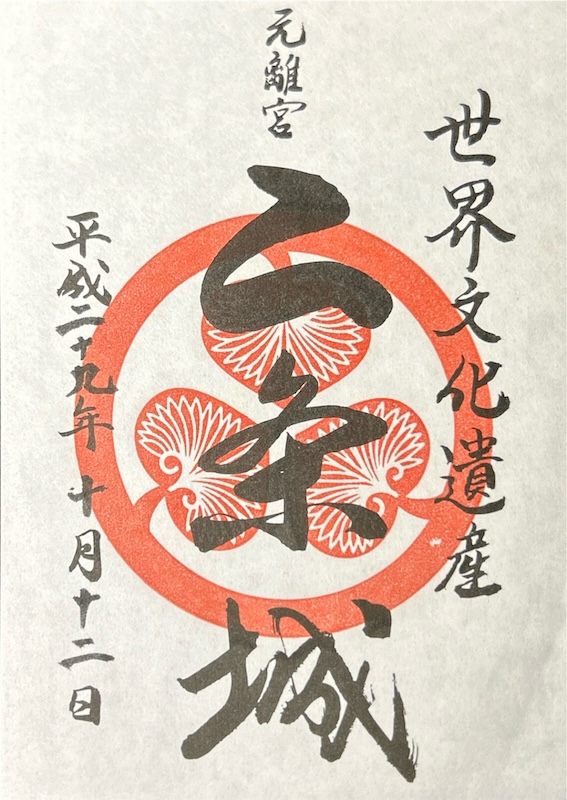 世界文化遺産
元離宮
二条城
平成二十九年 十月十二日